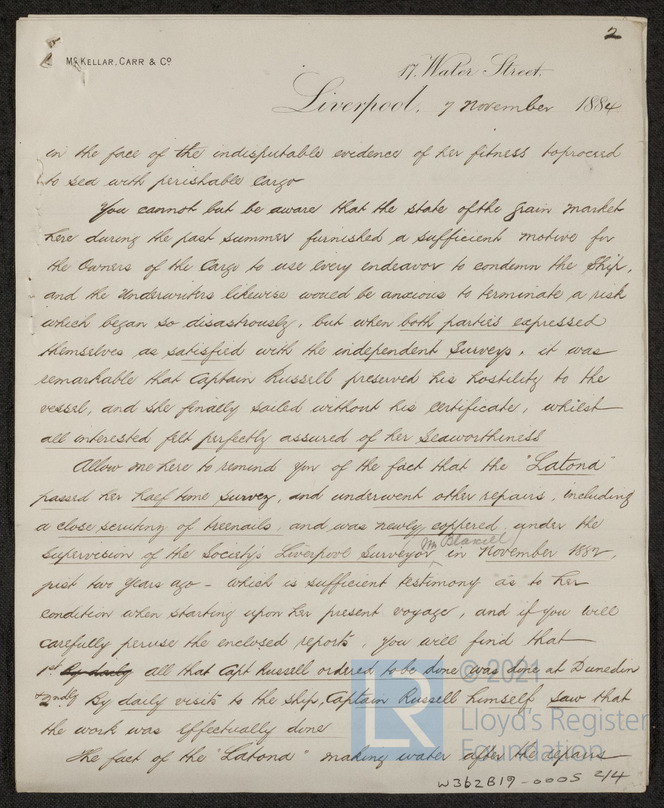 2
McKELLAR, CARR & Co
17, Water Street.
Liverpool, 7 November 1884
in the face of the indisputable evidence of her fitness to proceed
to sea with perishable Cargo
You cannot but be aware that the state of the grain market
here during the past summer furnished a sufficient motive for
the Owners of the Cargo to use every endeavor to condemn the Ship,
and the Underwriters likewise would be anxious to terminate a risk
which began so disastrously, but when both parties expressed
themselves as satisfied with the independent Surveys, it was
remarkable that Captain Russell preserved his hostility to the
vessel, and she finally sailed without his certificate, whilst
all interested felt perfectly assured of her seaworthiness
Allow me here to remind you of the fact that the "Latona"
passed her half time survey, and underwent other repairs, including
a close scrutiny of treenails and was newly coppered under the
Mr Blaxell
supervision of the Society's Liverpool Surveyor in November 1882,
just two years ago - which is sufficient testimony as to her
condition when starting upon her present voyage, and if you will
carefully peruse the enclosed reports, you will find that
1st By daily all that Capt Russell ordered to be done was done at Dunedin
& 2ndly By daily visits to the ship, Captain Russell himself saw that
the work was effectually done
The fact of the "Latona" making water after the repairs
W362B19-0005 2/4
LR
© 2021
Lloyd's Register
Foundation